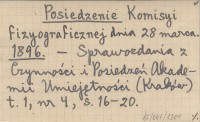 Posiedzenie Komisyi
fizyograficznej dnia 28 marca
1896. — Sprawozdania z
Czynności i Posiedzeń Akade-
mii Umiejętności (Kraków)
t. 1, nr 4, s. 16-20.